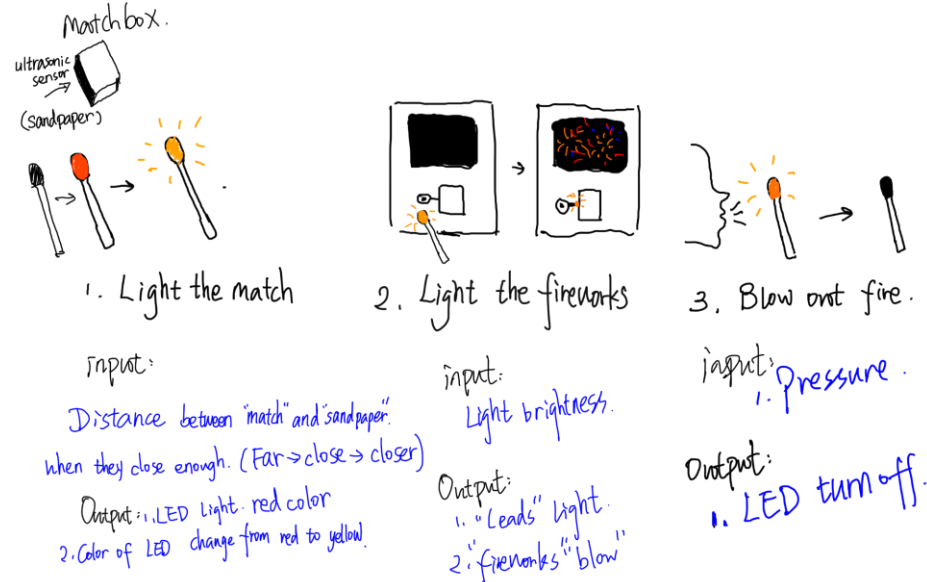 Matchbox.
ultrasonic
sensor
(sandpaper)
1. Light the match
input:
Distance between "match" and "sandpaper".
when they close enough. (Far→close→closer)
Output: 1. LED Light. red color
2. Color of LED change from red to yellow.
2. Light the fireworks
input:
Light brightness.
Output:
1. "Leads" Light.
2. "fireworks" "blow"
3. Blow out fire.
input:
1. Pressure.
Output:
1. LED turn off.